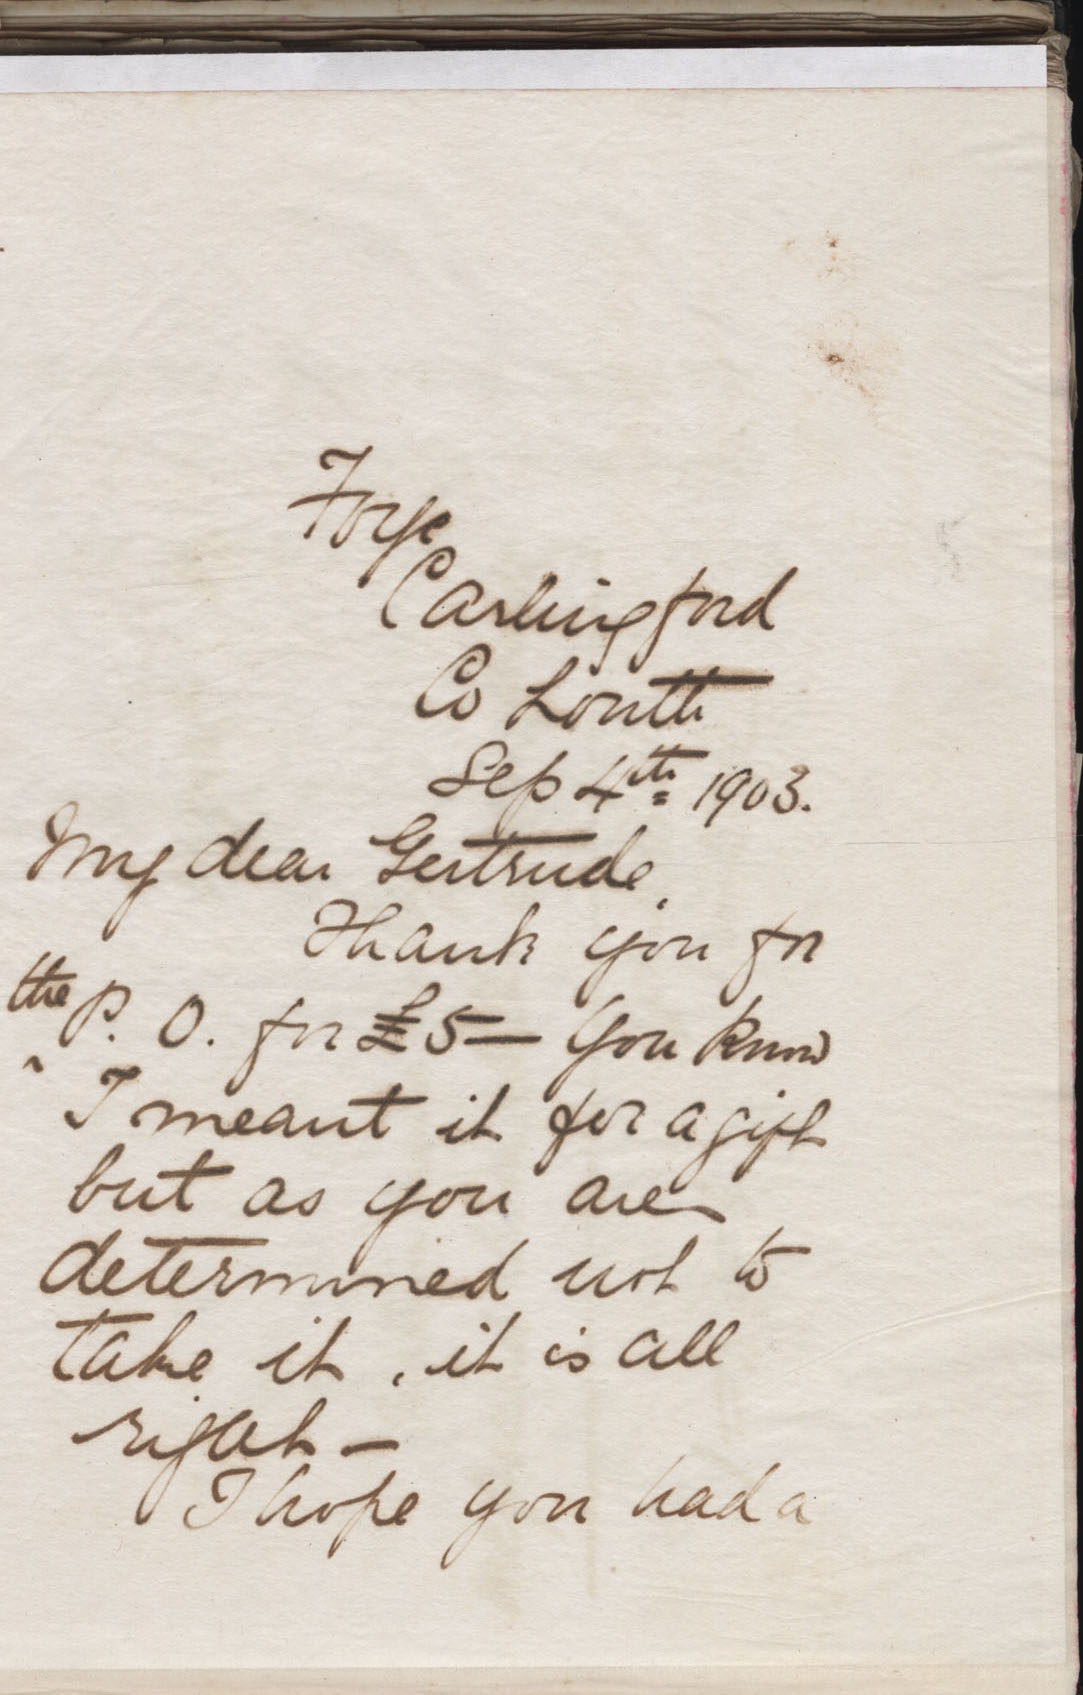 Foye
Carlingford
Co Louth
Sep 4th 1903.
My dear Gertrude,
Thank you for
the P. O. for £5 — You know
^
I meant it for a gift
but as you are
determined not to
take it, it is all
right —
I hope you had a